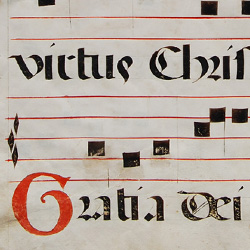 virtus Chris
Gratia Dei